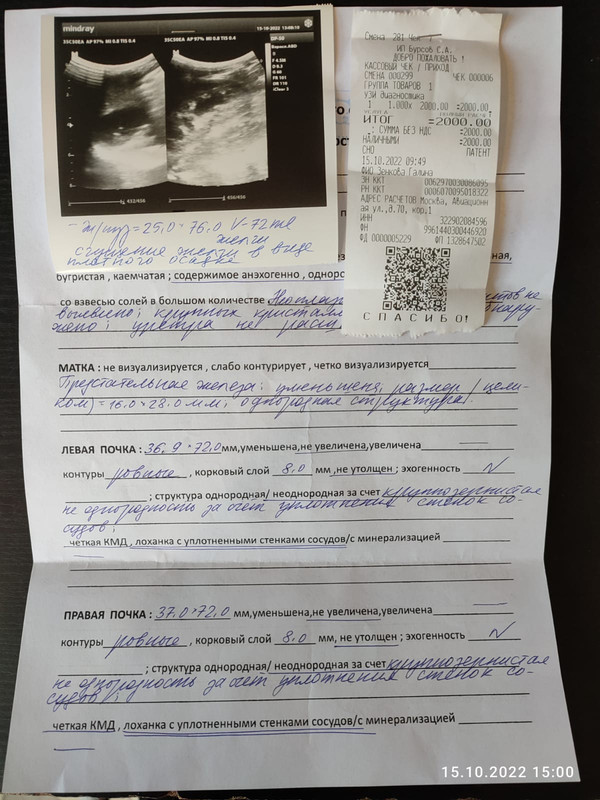 mindray
15-10-2022 13:08:10
35C50EA AP 97% MI 0.8 TIS 0.4
35C50EA AP 97% MI 0.8 TIS 0.4
432/436
436/436
Смена 281 Чек
ИП Бурсов С.А.
ДОБРО ПОЖАЛОВАТЬ !
КАССОВЫЙ ЧЕК / ПРИХОД
СМЕНА 000299 ЧЕК 000006
ГРУППА ТОВАРОВ 1
УЗИ диагностика
1 1.000x 2000.00 =2000.00
ИТОГ =2000.00
СУММА БЕЗ НДС =2000.00
НАЛИЧНЫМИ =2000.00
СНО ПАТЕНТ
15.10.2022 09:49
ФИО Зенкова Галина
ЗН ККТ 00629700300860​95
РН ККТ 0006070095018322
АДРЕС РАСЧЕТОВ Москва, Авиационн
ая ул.,д.70, кор.1
ИНН 322902084596
ФН 9961440300446920
ФД 0000005229 ФП 1328647502
СПАСИБО!
ж/пуз=25,0·76,0 V-72 мл
желчи
сгущение желчи в виде
плотного осадка
бугристая , каемчатая ; содержимое анэхогенно ,
со взвесью солей в большом количестве
выявлено; крупных
жено; уретра не
МАТКА : не визуализируется , слабо контурирует , четко визуализируется
Предстательная железа: уменьшена, размер / цели-
ком) =16.0×28.0 мм; однородная структура.
ЛЕВАЯ ПОЧКА : 36,9·72,0 мм,уменьшена,не увеличена,увеличена
контуры ровные , корковый слой 8,0 мм ,не утолщен ; эхогенность N
; структура однородная/ неоднородная за счет крупнозернистая
не однородность за счет уплотнения стенок со-
судов;
четкая КМД , лоханка с уплотненными стенками сосудов/с минерализацией
ПРАВАЯ ПОЧКА : 37,0·72,0 мм,уменьшена,не увеличена,увеличена
контуры ровные , корковый слой 8,0 мм , не утолщен ; эхогенность N
; структура однородная/ неоднородная за счет крупнозернистая
не однородность за счет уплотнения стенок со-
судов;
четкая КМД , лоханка с уплотненными стенками сосудов/с минерализацией
15.10.2022 15:00